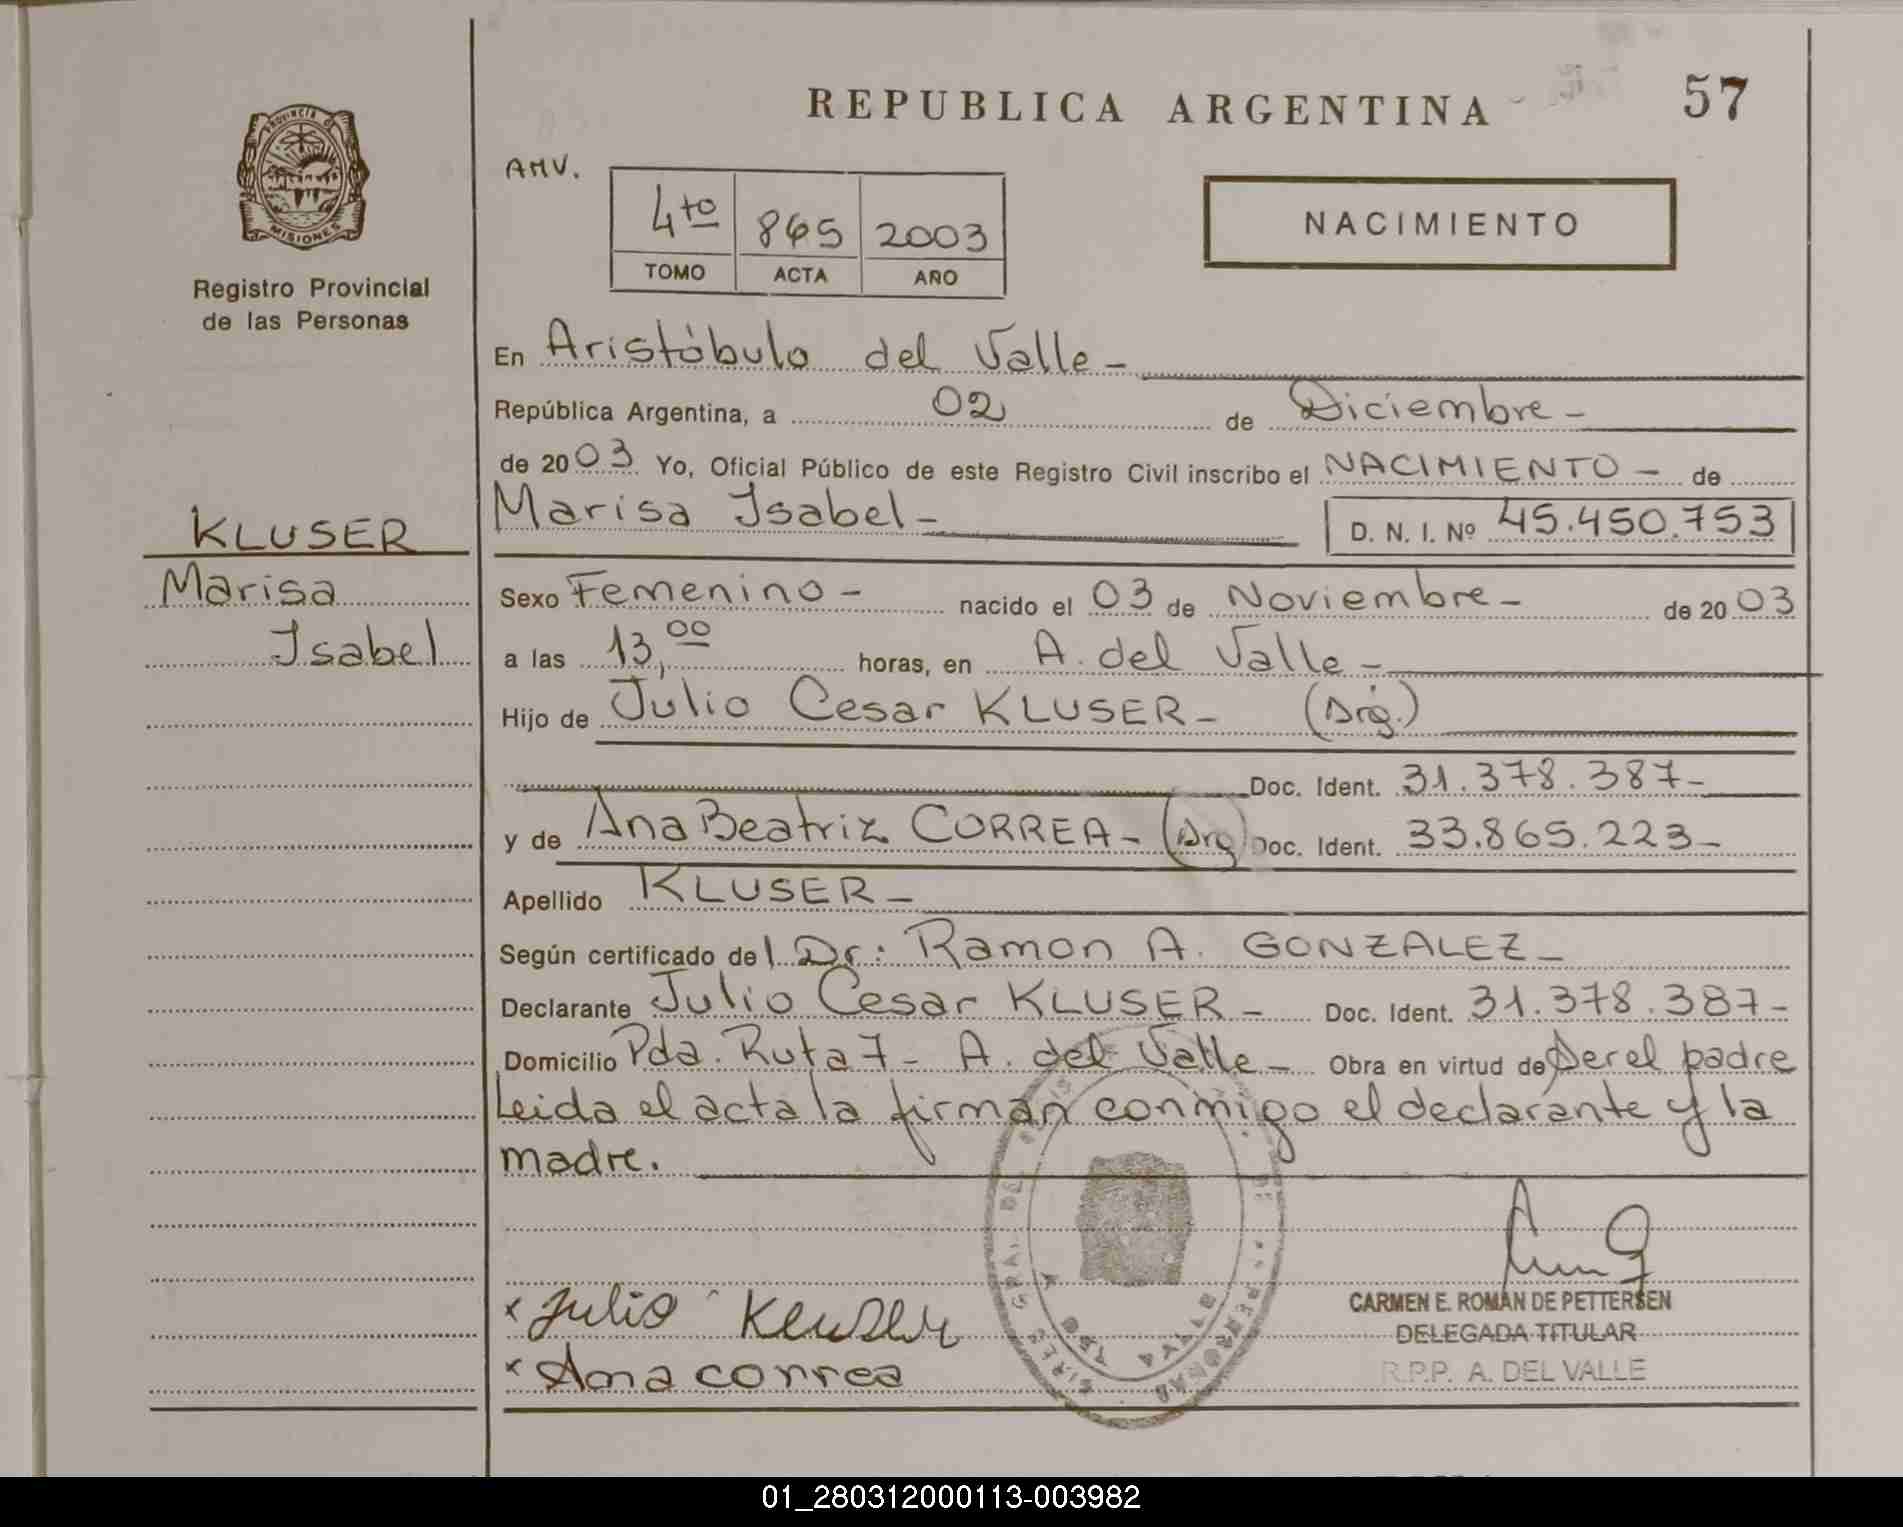 REPUBLICA ARGENTINA
57
PROVINCIA D
MISIONES
Registro Provincial
de las Personas
AMV.
4to 865 2003
TOMO ACTA AÑO
NACIMIENTO
En Aristóbulo del Valle -
República Argentina, a 02 de Diciembre -
de 2003 Yo, Oficial Público de este Registro Civil inscribo el NACIMIENTO - de
Marisa Isabel - D. N. I. Nº 45.450.753
KLUSER
Marisa
Isabel
Sexo Femenino - nacido el 03 de Noviembre - de 2003
a las 13,00 horas, en A. del Valle -
Hijo de Julio Cesar KLUSER - (Arg.)
Doc. Ident. 31.378.387-
y de Ana Beatriz CORREA - (Arg) Doc. Ident. 33.865.223-
Apellido KLUSER -
Según certificado del Dr: Ramon A. GONZALEZ -
Declarante Julio Cesar KLUSER - Doc. Ident. 31.378.387-
Domicilio Pda. Ruta 7 - A. del Valle - Obra en virtud de Ser el padre
Leida el acta la firman conmigo el declarante y la
madre.
x Julio Kluser
x Ana correa
CARMEN E. ROMÁN DE PETTERSEN
DELEGADA TITULAR
R.P.P. A. DEL VALLE
01_280312000113-003982